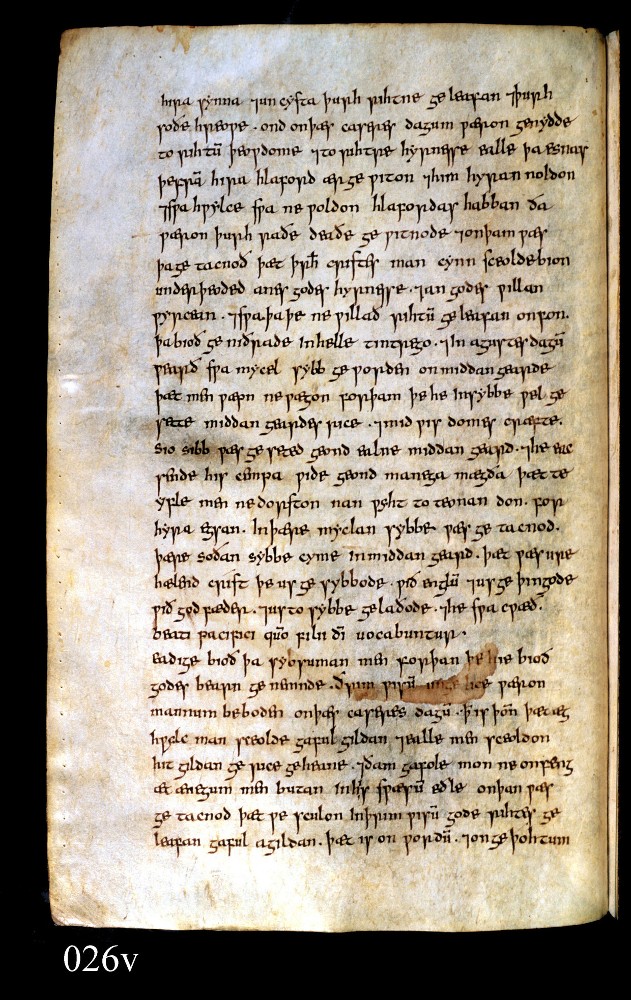 hira synna ⁊ uncysta þurh rihtne geleafan ⁊ þurh
soðe hreowe · ond on þæs caseres dagum wæron genydde
to rihtū þeowdome ⁊ to rihtre hyrnesse ealle þa esnas
þe frā hira hlaford ær gewiton ⁊ him hyran noldon
⁊ swa hwylce swa ne woldon hlafordas habban ða
wæron þurh rade deade gewitnode ⁊ on þam wæs
þa getacnod þæt þurh cristes man cynn sceolde bion
underþeoded anes godes hyrnesse · ⁊ an godes willan
wyrcean · ⁊ swa þa þe ne willað rihtū geleafan onfon ·
þa bioð geniðrade in helle tintrego · ⁊ in agustes dagū
wearð swa mycel sybb geworden on middangearde
þæt men wæpn ne wægon forþam þe he in sybbe wel ge
sette middangeardes rice · ⁊ mid wis domes cræfte ·
sio sibb wæs geseted geond ealne middangeard · ⁊ he eac
sende his cempa wide geond manega mægða þæt te
yfle men ne dorfton nan wyht to teonan don · for
hyra egsan · In þære myclan sybbe wæs getacnod ·
þære soðan sybbe cyme in middangeard · þæt wæs ure
hæleið crist þe us gesybbode · wið englū ⁊ us geþingode
wið god fæder · ⁊ us to sybbe gelaðode · ⁊ he swa cwæð ·
beati pacifici qūo filii dī uocabuntur ·
eadige bioð þa sybsuman men forþan þe hie bioð
godes bearn genemnde · Ðrim wisū wæron
mannum beboden on þæs caseres dagū · þ is þōn þæt æg
hwylc man sceolde gaful gildan ⁊ ealle men sceoldon
hit gildan ge rice ge heane · ⁊ ðam gafole mon ne onfeng
æt ænegum men butan in his swæsū edle on þan wæs
getacnod þæt we sculon in þrim wisū gode rihtes ge
leafan gaful agildan · þæt is on wordū · ⁊ on geþohtum
026v